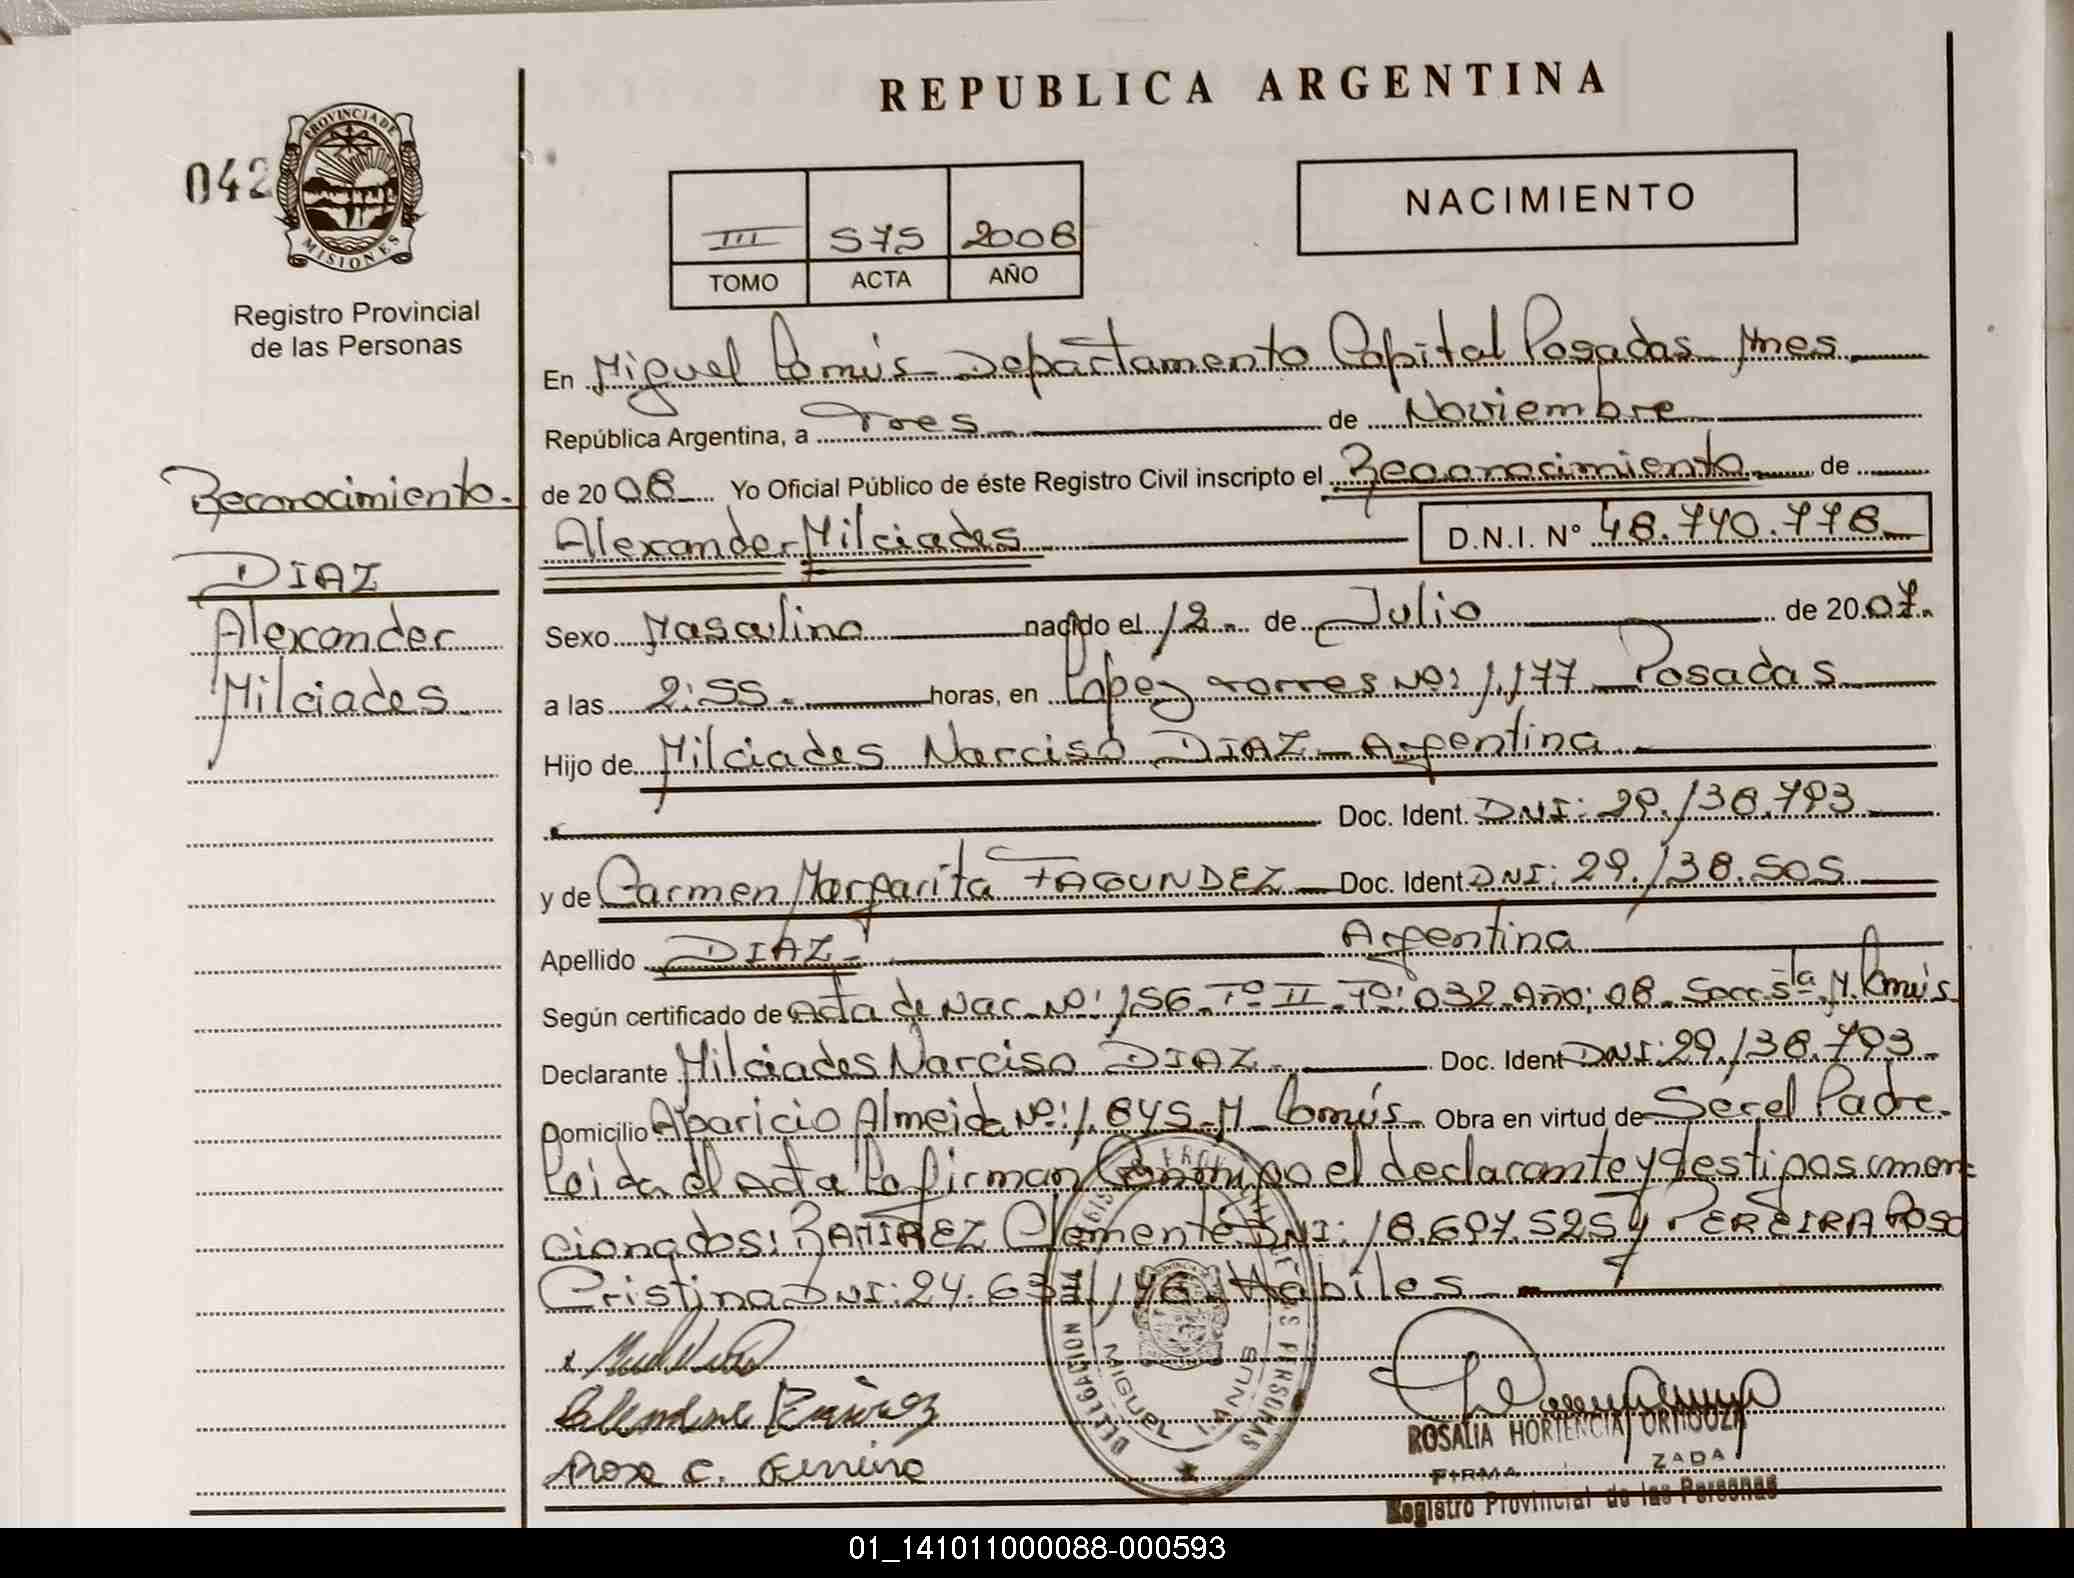 REPUBLICA ARGENTINA
042
PROVINCIA DE
MISIONES
Registro Provincial
de las Personas
III 575 2008
TOMO ACTA AÑO
NACIMIENTO
Reconocimiento.
DIAZ
Alexander
Milciades
En Miguel Lanús Departamento Capital Posadas Mnes
República Argentina, a Tres de Noviembre
de 2008 Yo Oficial Público de éste Registro Civil inscripto el Reconocimiento de
Alexander Milciades D.N.I. Nº 48.740.778
Sexo Masculino nacido el 12 de Julio de 2007.
a las 2:55 horas, en López torres Nº: 1.177 Posadas
Hijo de Milciades Narciso DIAZ Argentina
Doc. Ident. DNI: 29.138.793
y de Carmen Margarita FAGUNDEZ Doc. Ident DNI: 29.138.505
Apellido DIAZ Argentina
Según certificado de Acta de Nac. Nº: 156 Tº II Fº: 032 Año: 08 Secc. 5ta M. Lanús
Declarante Milciades Narciso DIAZ Doc. Ident DNI: 29.138.793
Domicilio Aparicio Almeida Nº: 1.845 M. Lanús Obra en virtud de Ser el Padre.
Leida el Acta la firman Conmigo el declarante y testigos a men=
cionados: RAMIREZ Clemente DNI: 18.697.525 y PEREIRA Rosa
Cristina DNI: 24.63 146 Habiles
Ramirez
Rosa C.
DELEGACION
MIGUEL LANUS
ROSALIA HORTENCIA
FIRMA ZADA
Registro Provincial de las Personas
01_141011000088-000593